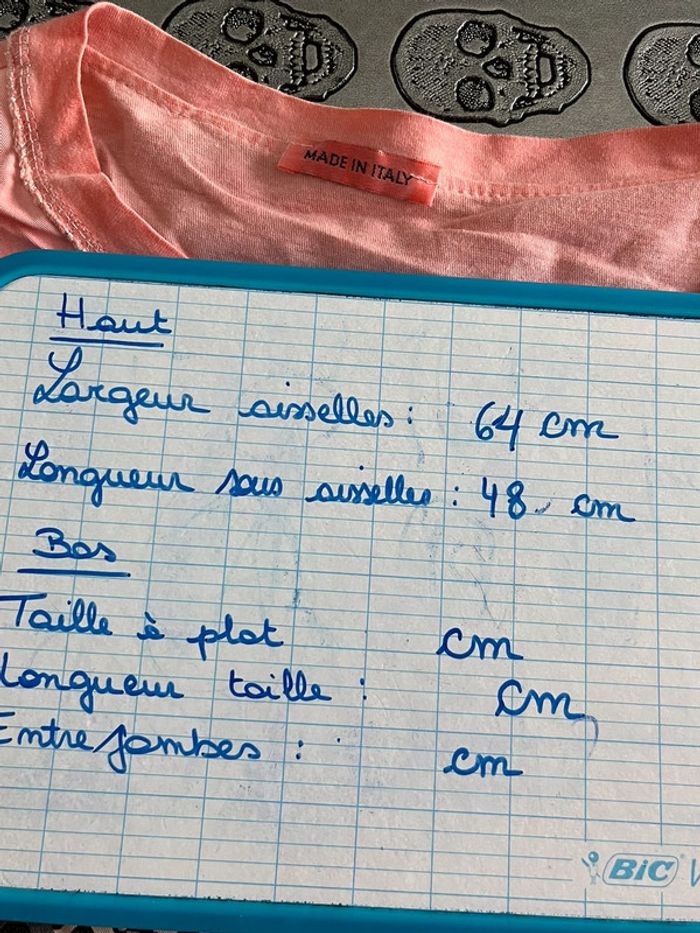 MADE IN ITALY
Haut
Largeur aisselles : 64 cm
Longueur sous aisselles : 48 cm
Bas
Taille à plat cm
Longueur taille : cm
Entre jambes : cm
BiC